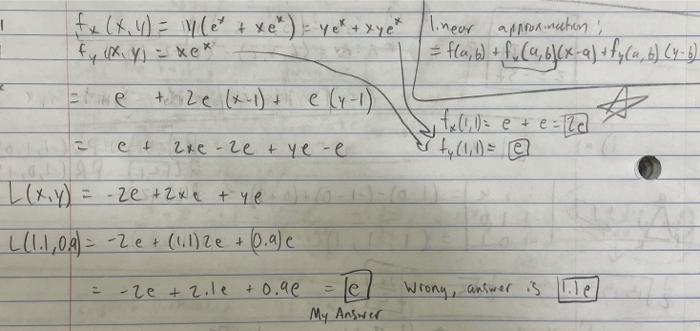 f_x (x,y) = y(e^x + xe^x) = ye^x + xye^x
f_y (x,y) = xe^x
linear approximation:
= f(a,b) + f_x(a,b)(x-a) + f_y(a,b)(y-b)
= e + 2e (x-1) + e (y-1)
f_x(1,1) = e + e = 2e
f_y(1,1) = e
= e + 2xe - 2e + ye - e
L(x,y) = -2e + 2xe + ye
L(1.1,0.9) = -2e + (1.1)2e + (0.9)e
= -2e + 2.1e + 0.9e = e Wrong, answer is 1.1e
My Answer